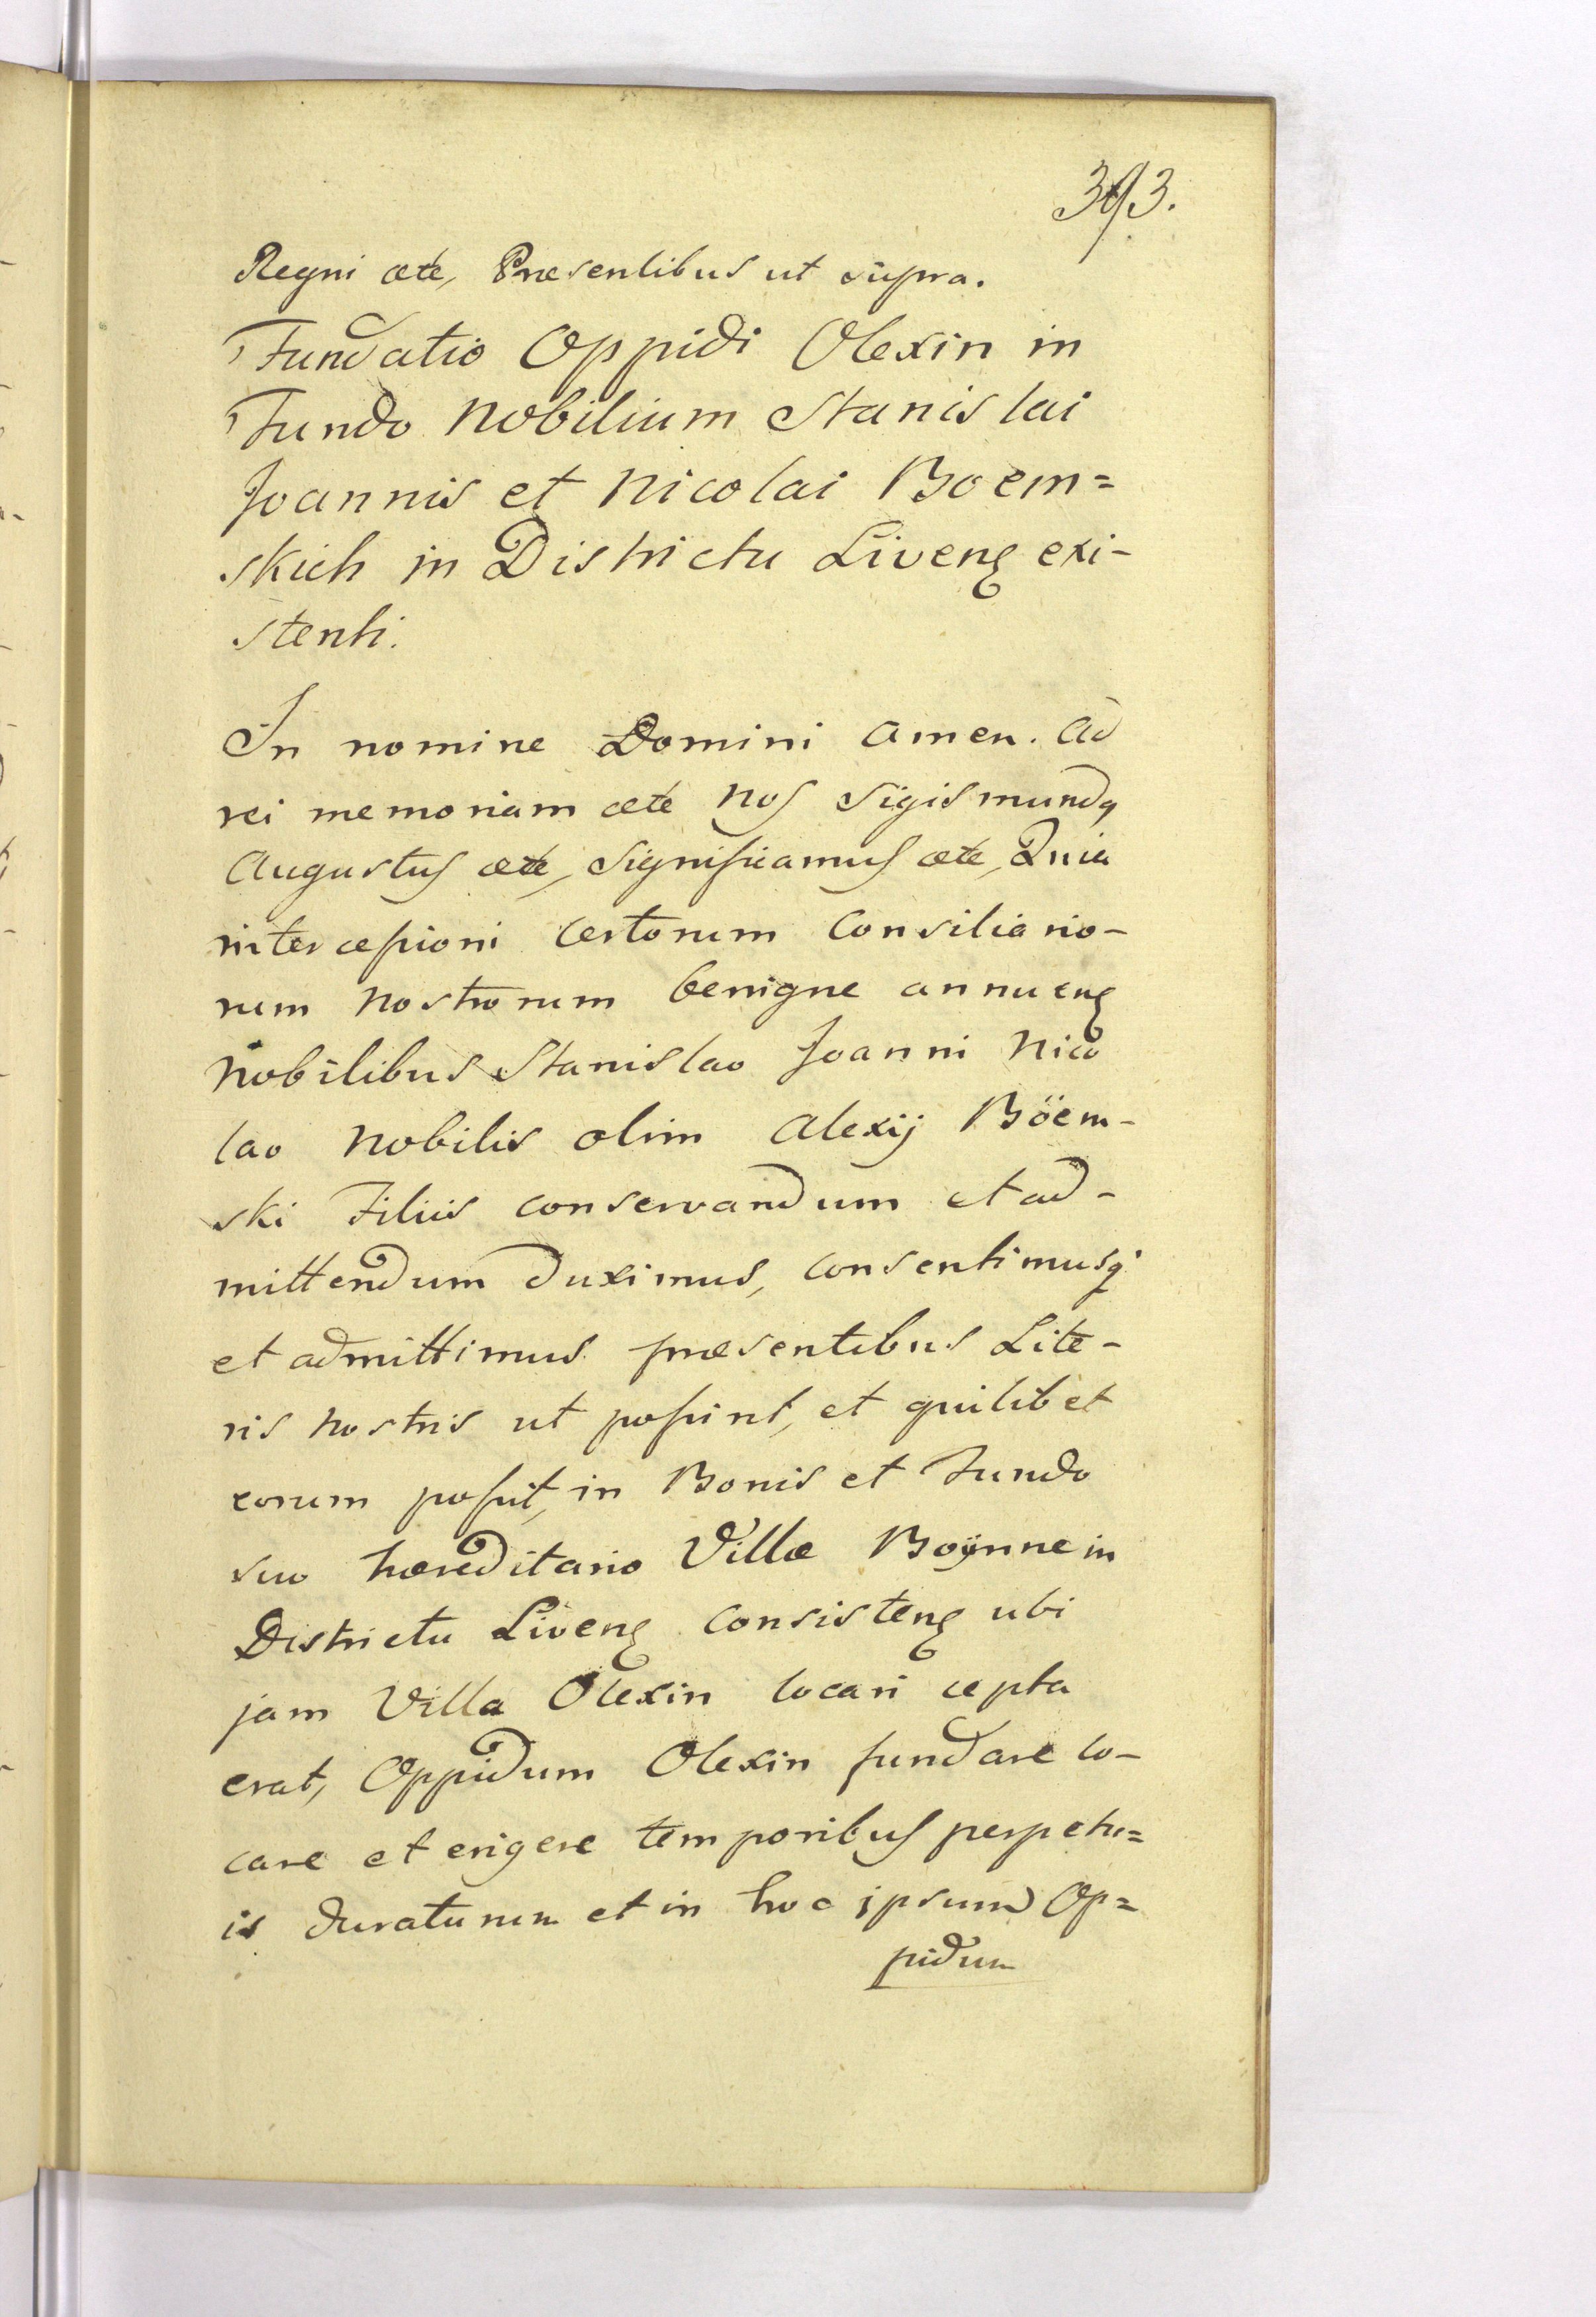 393.
Regni cete, Præsentibus ut supra.
Fundatio Oppidi Olexin in
Fundo Nobilium Stanislai
Joannis et Nicolai Boem=
skich in Districtu Liveng exi-
stenti.
In nomine Domini Amen. Ad
rei memoriam cete Nos Sigismundq
Augustus cete, Significamus cete, Quia
intercessioni certorum Consiliario-
rum Nostrorum benigne annueng
Nobilibus Stanislao Joanni Nico
lao Nobilis olim Alexij Böem-
ski Filiis conservandum et ad-
mittendum duximus, consentimusq
et admittimus præsentibus Lite-
ris Nostris ut possint, et quilibet
eorum possit, in Bonis et Fundo
suo hæreditario Villæ Boÿnne in
Districtu Liveng consisteng ubi
jam Villa Olexin locari cepta
erat, Oppidum Olexin fundare lo-
care et erigere temporibus perpetu=
is duraturum et in hoc ipsum Op=
pidum